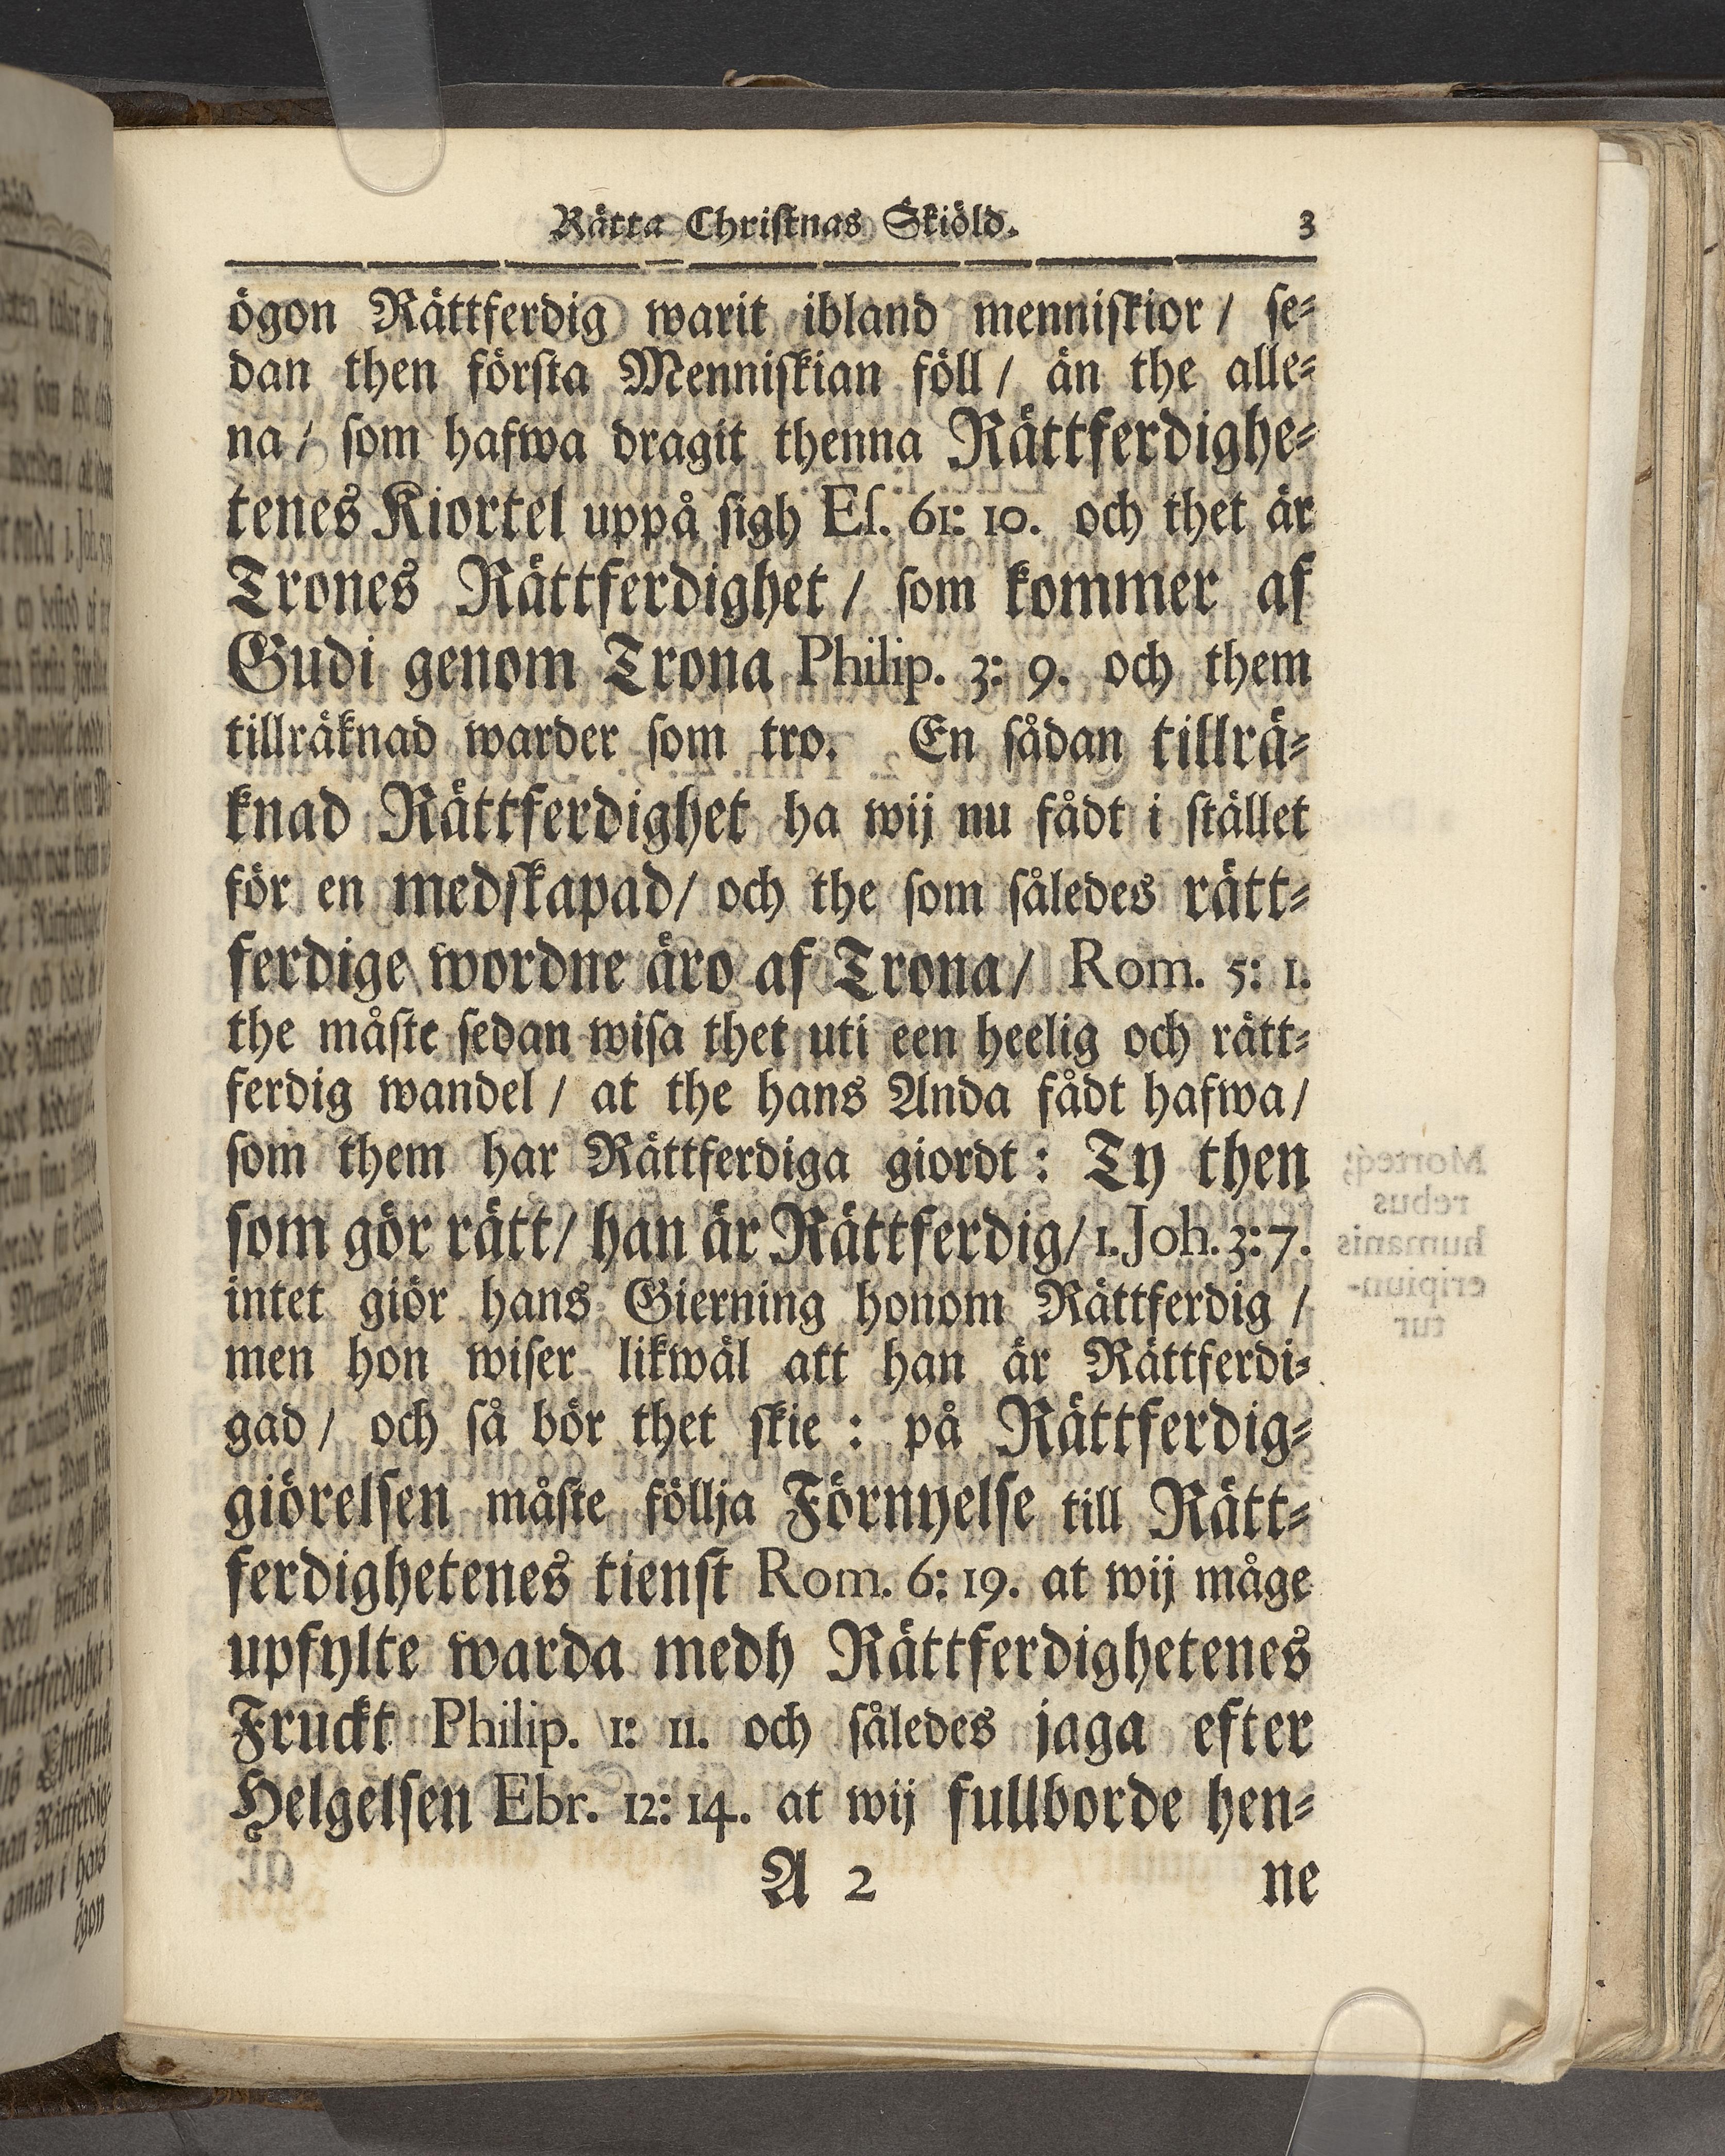 Rätta Christnas Skiöld. 3
ögon Rättferdig warit ibland menniskior / se-
dan then första Menniskian föll / än the alle-
na / som hafwa dragit thenna Rättferdighe-
tenes Kiortel uppå sigh Es. 61: 10. och thet är
Trones Rättferdighet / som kommer af
Gudi genom Trona Philip. 3: 9. och them
tillräknad warder som tro. En sådan tillrä-
knad Rättferdighet ha wij nu fådt i stället
för en medskapad / och the som således rätt-
ferdige wordne äro af Trona / Rom. 5: 1.
the måste sedan wisa thet uti een heelig och rätt-
ferdig wandel / at the hans Anda fådt hafwa /
som them har Rättferdiga giordt : Ty then
som gör rätt / han är Rättferdig / 1. Joh. 3: 7.
intet giör hans Gierning honom Rättferdig /
men hon wiser likwäl att han är Rättferdi-
gad / och så bör thet skie : på Rättferdig-
giörelsen måste föllja Förnyelse till Rätt-
ferdighetenes tienst Rom. 6: 19. at wij måge
upfylte warda medh Rättferdighetenes
Fruckt Philip. 1: 11. och således jaga efter
Helgelsen Ebr. 12: 14. at wij fullborde hen-
A 2 ne